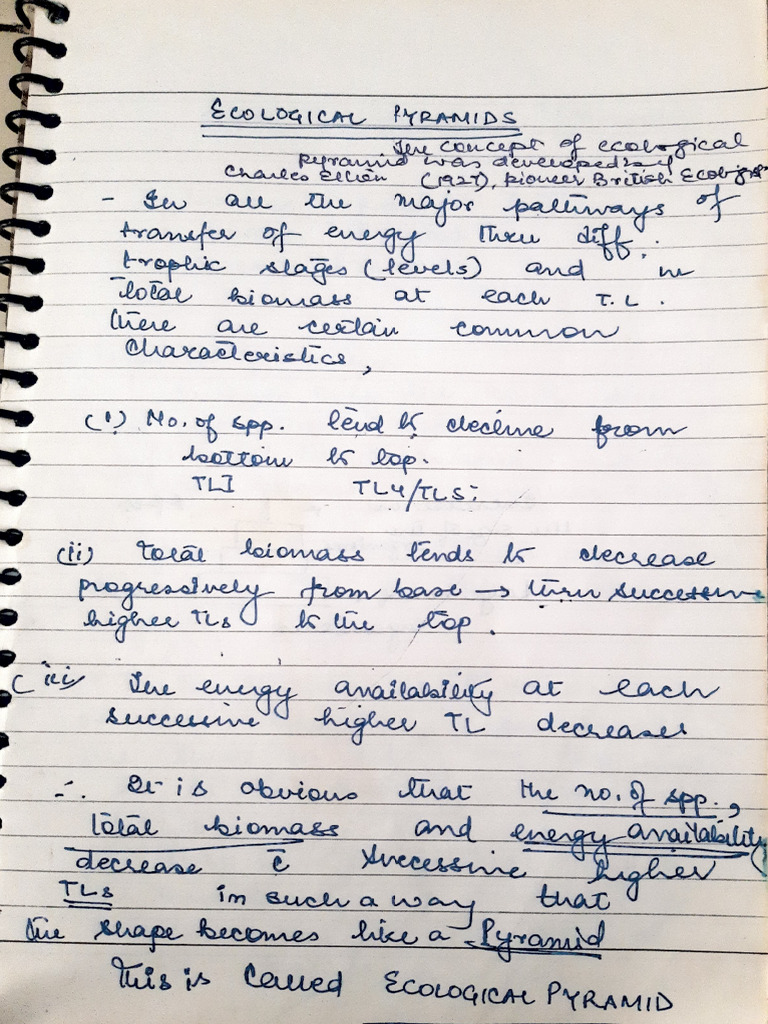 ECOLOGICAL PYRAMIDS
The concept of ecological
pyramid was developed by
Charles Elton (1927), pioneer British Ecologist
- In all the major pathways of
transfer of energy thru diff.
trophic stages (levels) and in
total biomass at each T.L.
there are certain common
characteristics,
(i) No. of spp. tend to decline from
bottom to top.
TLI TL4/TL5:
(ii) Total biomass tends to decrease
progressively from base → thru successive
higher TLs to the top.
(iii) The energy availability at each
successive higher TL decreases
∴ It is obvious that the no. of spp.,
total biomass and energy availability
decrease c̄ successive higher
TLs in such a way that
the shape becomes like a Pyramid
This is called ECOLOGICAL PYRAMID